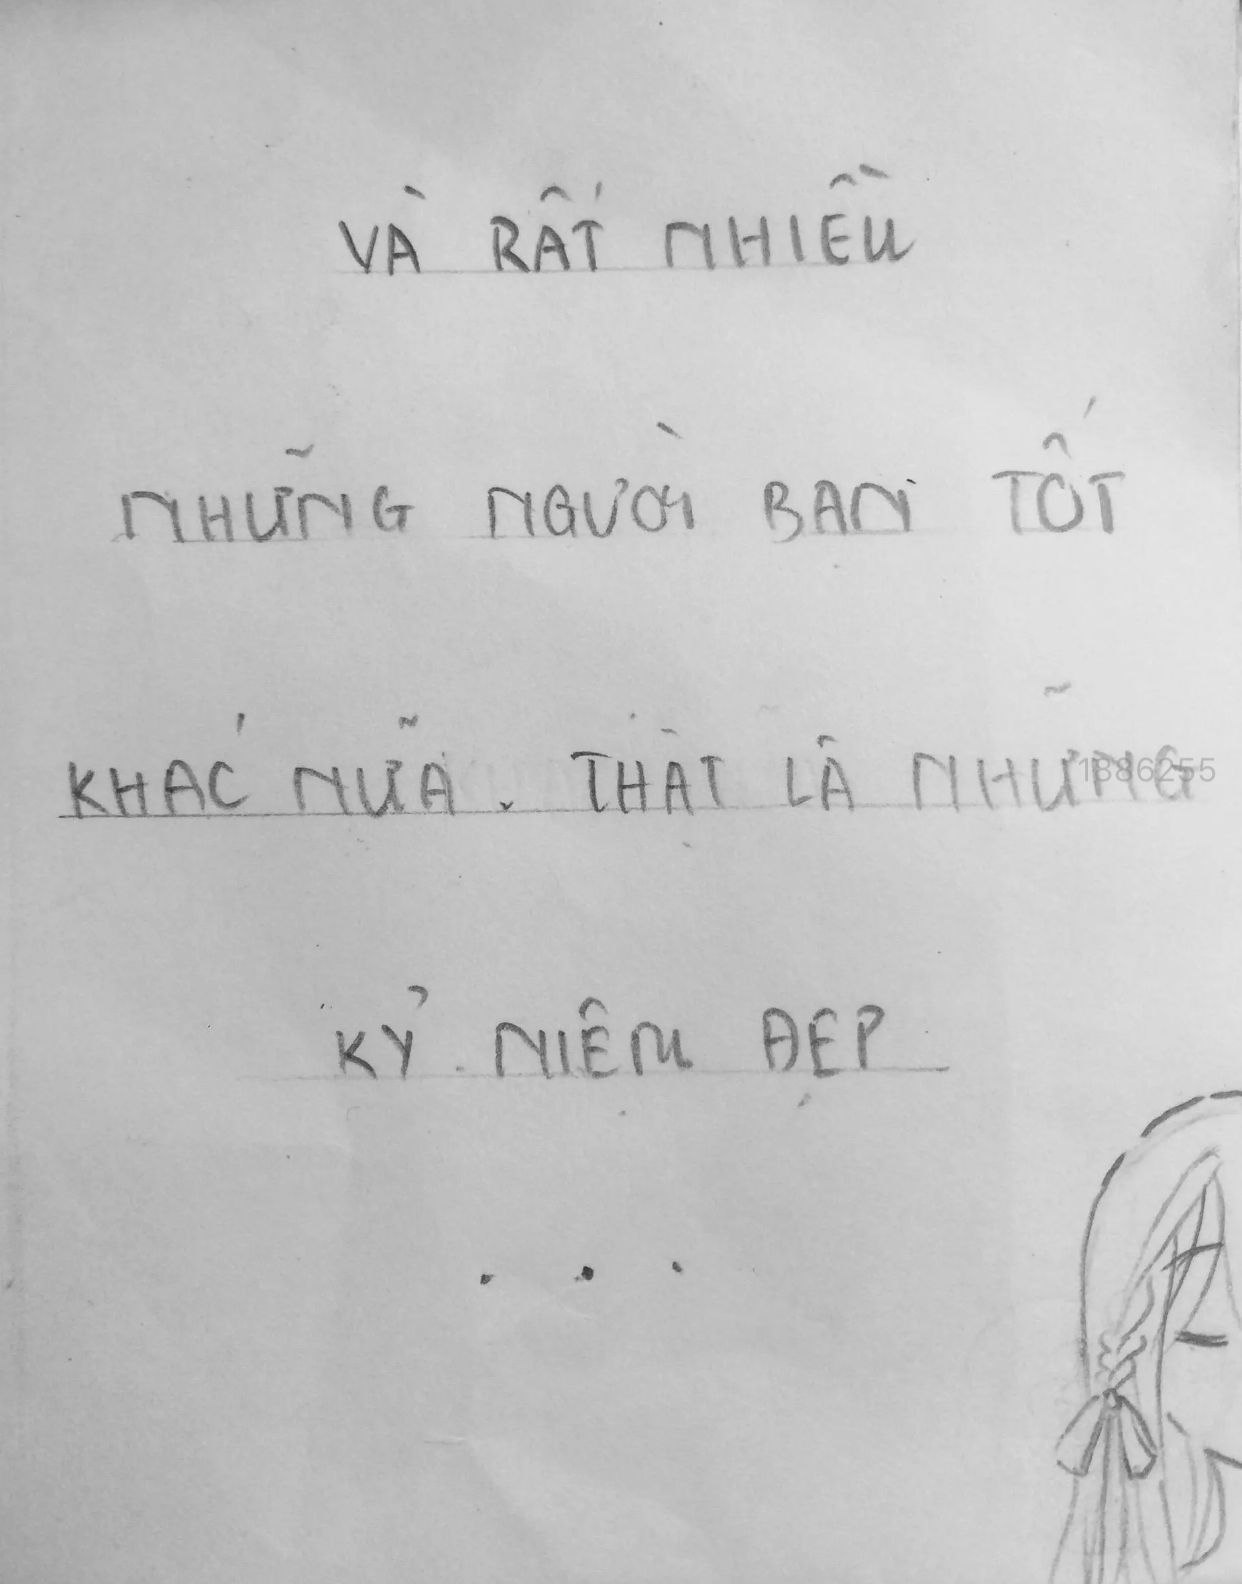 VÀ RẤT NHIỀU
NHỮNG NGƯỜI BẠN TỐT
KHÁC NỮA. THẬT LÀ NHỮNG
1886255
KỶ NIỆM ĐẸP
...